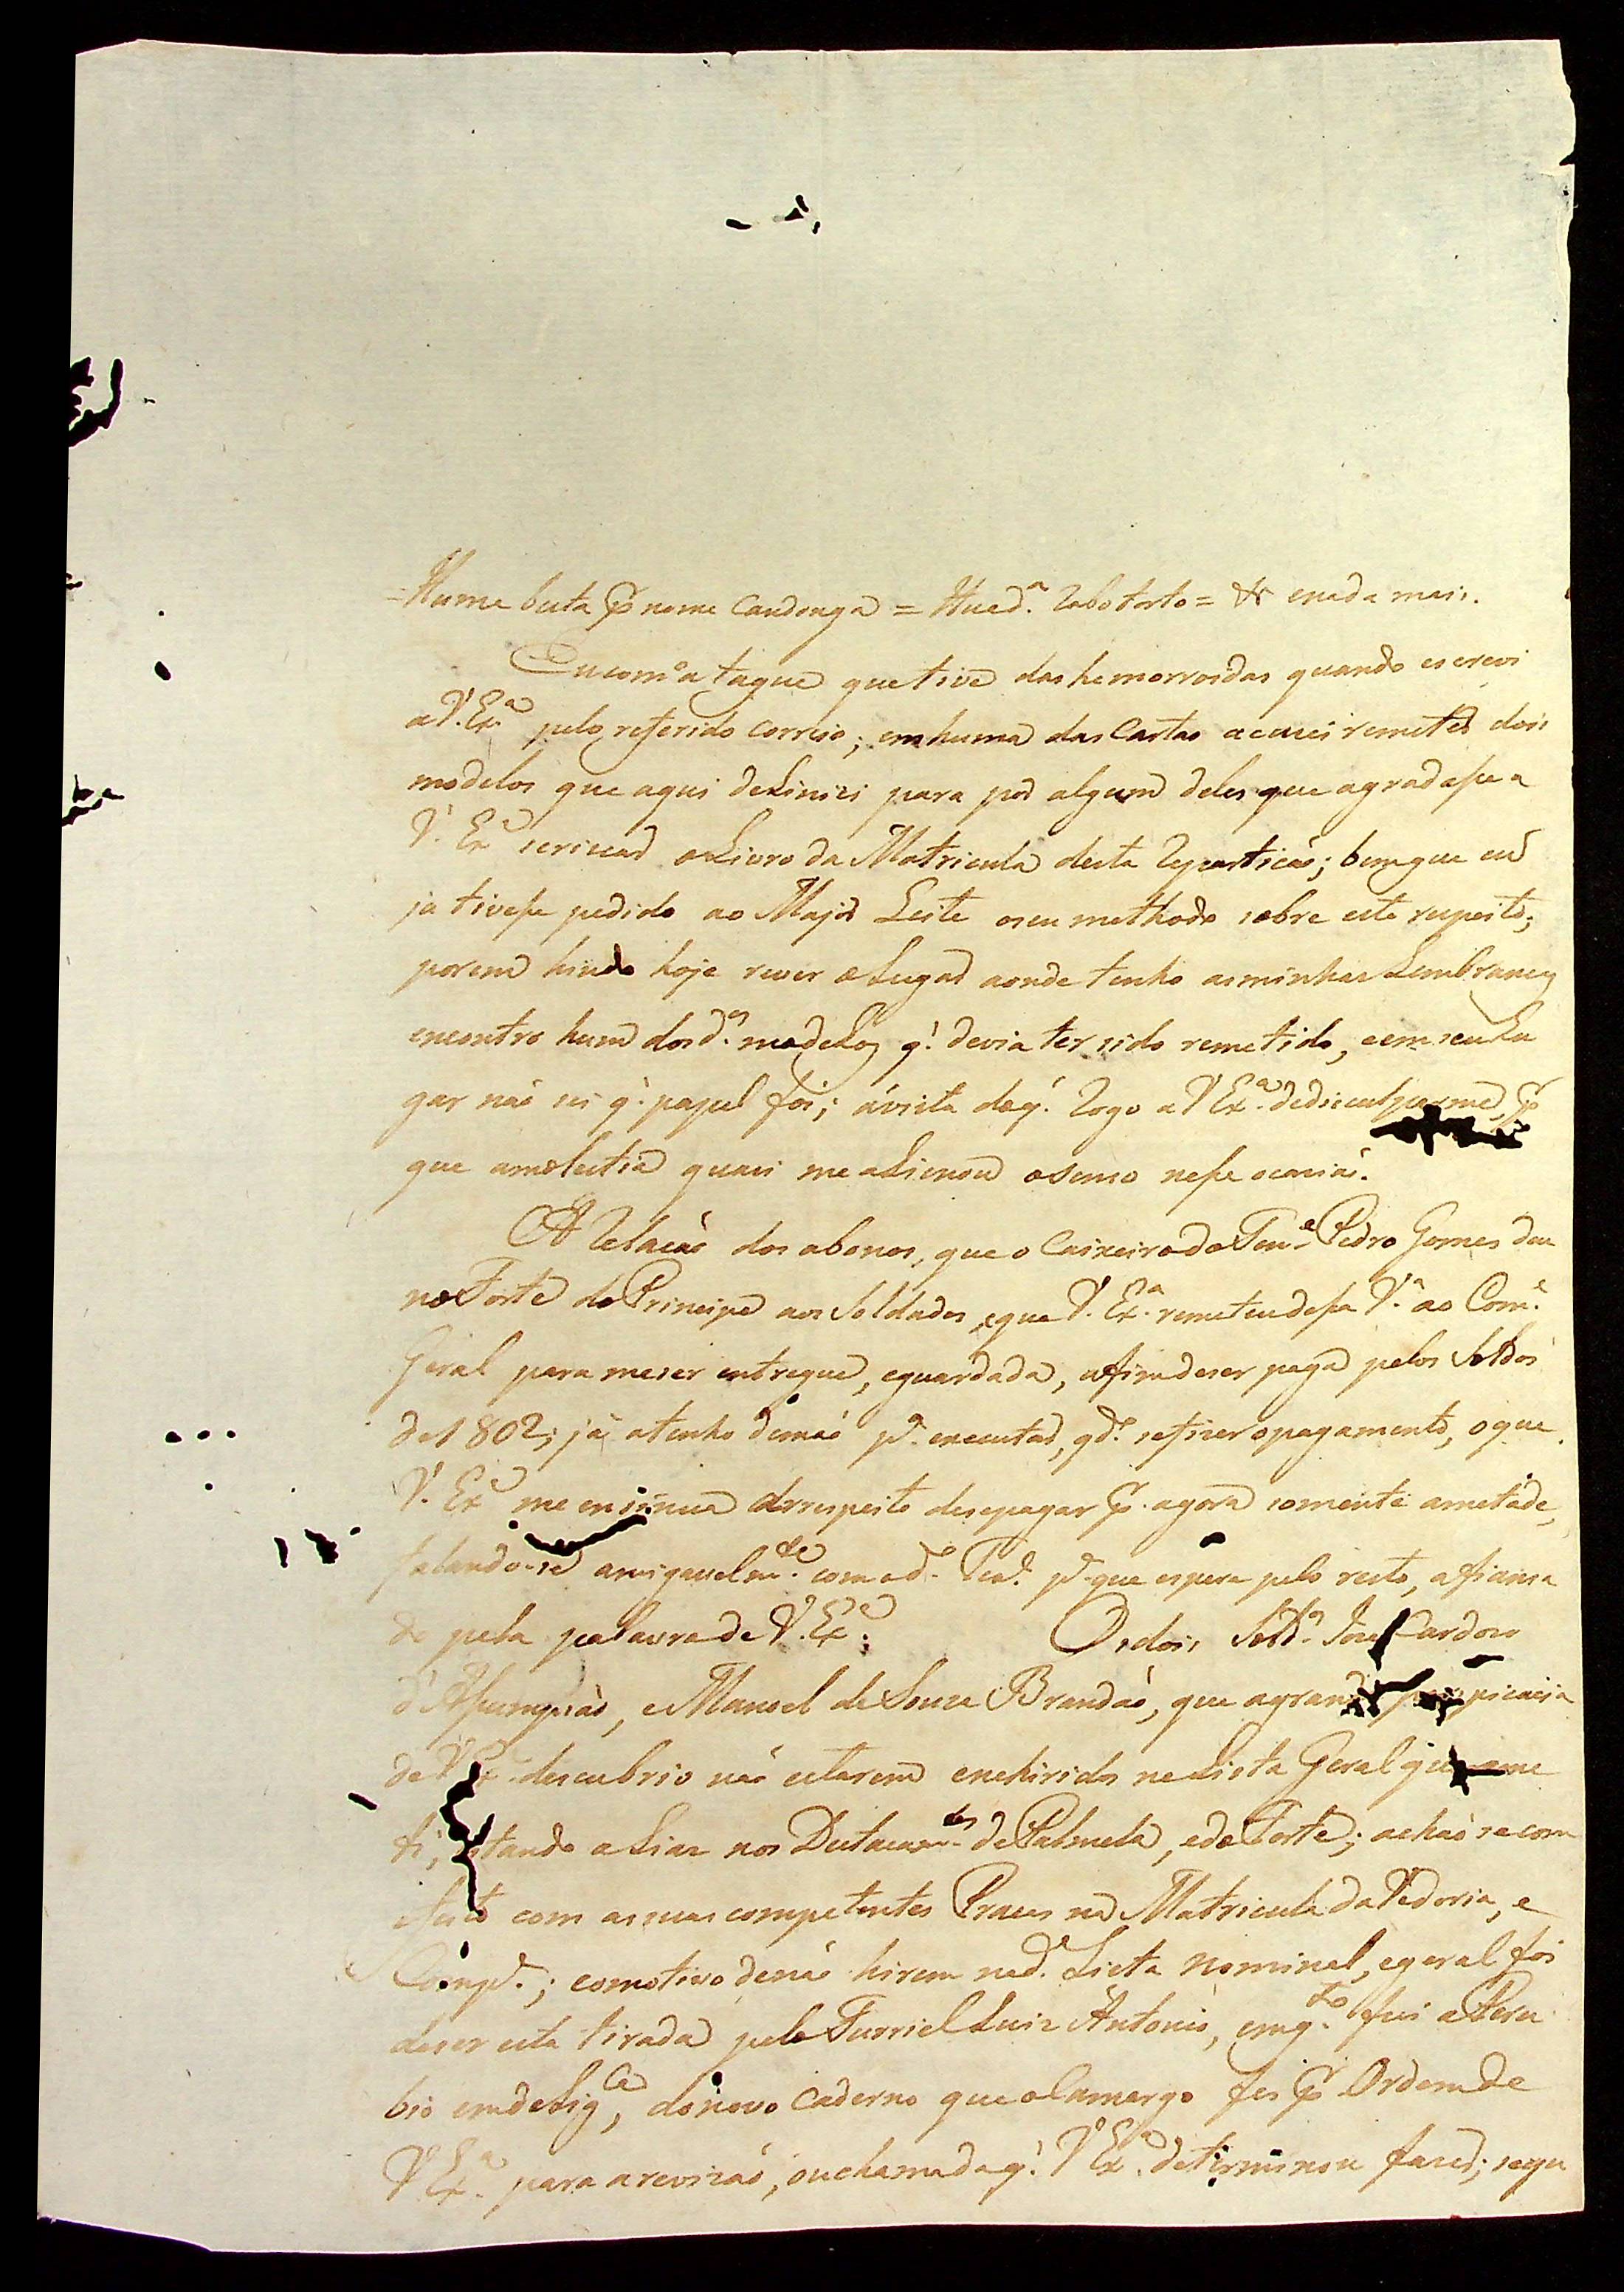 =Huma besta p.r nome Candonga = Hua d.a Rabo torto = &c e nada mais.
Eu com o ataque que tive das hemorroidas quando escrevi
a V. Ex.a pelo referido correio; em huma das Cartas acusei remeter dois
modelos que aqui deliniei para por algum deles que agradasse a
V. Ex.a seriscar o Livro da Matricula desta Reparticaõ; bem que eu
ja tivesse pedido ao Major Leite o seu methodo sobre este respeito;
porem hindo hoje rever o Lugar aonde tenho as minhas Lembranças
encontro hum dos d.os modelos q.' devia ter sido remetido, e em seu Lu
gar naõ sei q.' papel foi; á vista do q.' Rogo a V Ex.a de disculparme, p.r
que a molestia quasi me alienou o senso nesse ocasiaõ.
A Relacaõ dos abonos, que o Caixeiro do Ten.e Pedro Gomes deu
no Forte do Principe aos Soldados, e que V. Ex.a remeteu dessa V.a ao Com.e
Geral para me ser entregue, e guardada, afim de ser paga pelos Soldos
de 1802; já a tenho de maõ p.a executar, q.do se fizer o pagamento, o que
V. Ex.a me ensinua a respeito de se pagar p.r agora somente ametade,
falando-se amigavelm.te com o d.o Ten.e p.a que espere pelo resto, afiansa
do pela palavra de V. Ex.a. Os dois Sold.os Joze Cardozo
d'Assumpsaõ, e Manoel de Souza Brandaõ, que a grande perspicacia
de V Ex.a descubrio naõ estarem enchiridos na Lista Geral que reme
ti, estando aliaz nos Destacam.tos de Palmela, e do Forte; achaõ-se com
efeito com as suas competentes Praças na Matricula da Vedoria, e
Comp.a; e o motivo de naõ hirem na d.a Lista nominal, e geral foi
de ser esta tirada pelo Furriel Luiz Antonio, em q.to fui a Peru
bio em delig.ca, do novo Caderno que o Camargo fes p.r Ordem de
V Ex.a para a revizaõ, ou chamada q.' V Ex.a determinou fazer; segu